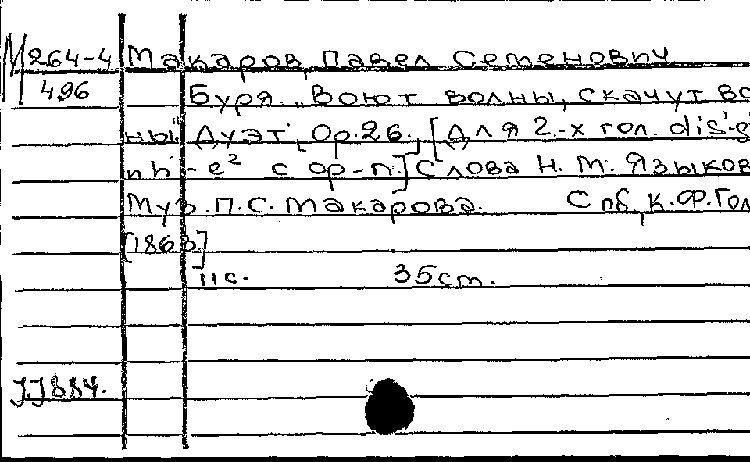 М 264-4 Макаров, Павел Семенович
496 Буря. "Воют волны, скачут во
ны". Дуэт, Ор. 26. [Для 2-х гол. dis'-g
h' - e² с ор-п.] Слова Н. М. Языков
Муз. П. С. Макарова. Спб, К. Ф. Гол
[1863]
11 с. 35 cm.